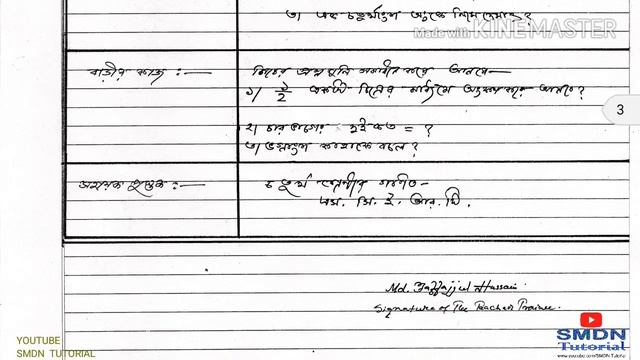 ৩) এক চতুর্থাংশ অংকে লিখে দেখাও?
Made with KINEMASTER
বাড়ীর কাজ :—
নিচের প্রশ্নগুলি সমাধান করে আনবে—
১) ১/২ একটি চিত্রের মাধ্যমে অংকন করে আনবে?
3
২) চার ভাগের দুই কত = ?
৩) ভগ্নাংশ কাহাকে বলে?
সহায়ক পুস্তক :—
চতুর্থ শ্রেণীর গণিত—
এস. সি. ই. আর. টি.
Md. Hussain
Signature of The Teacher Trainee.
YOUTUBE
SMDN TUTORIAL
SMDN
Tutorial
www.youtube.com/SMDN Tutorial